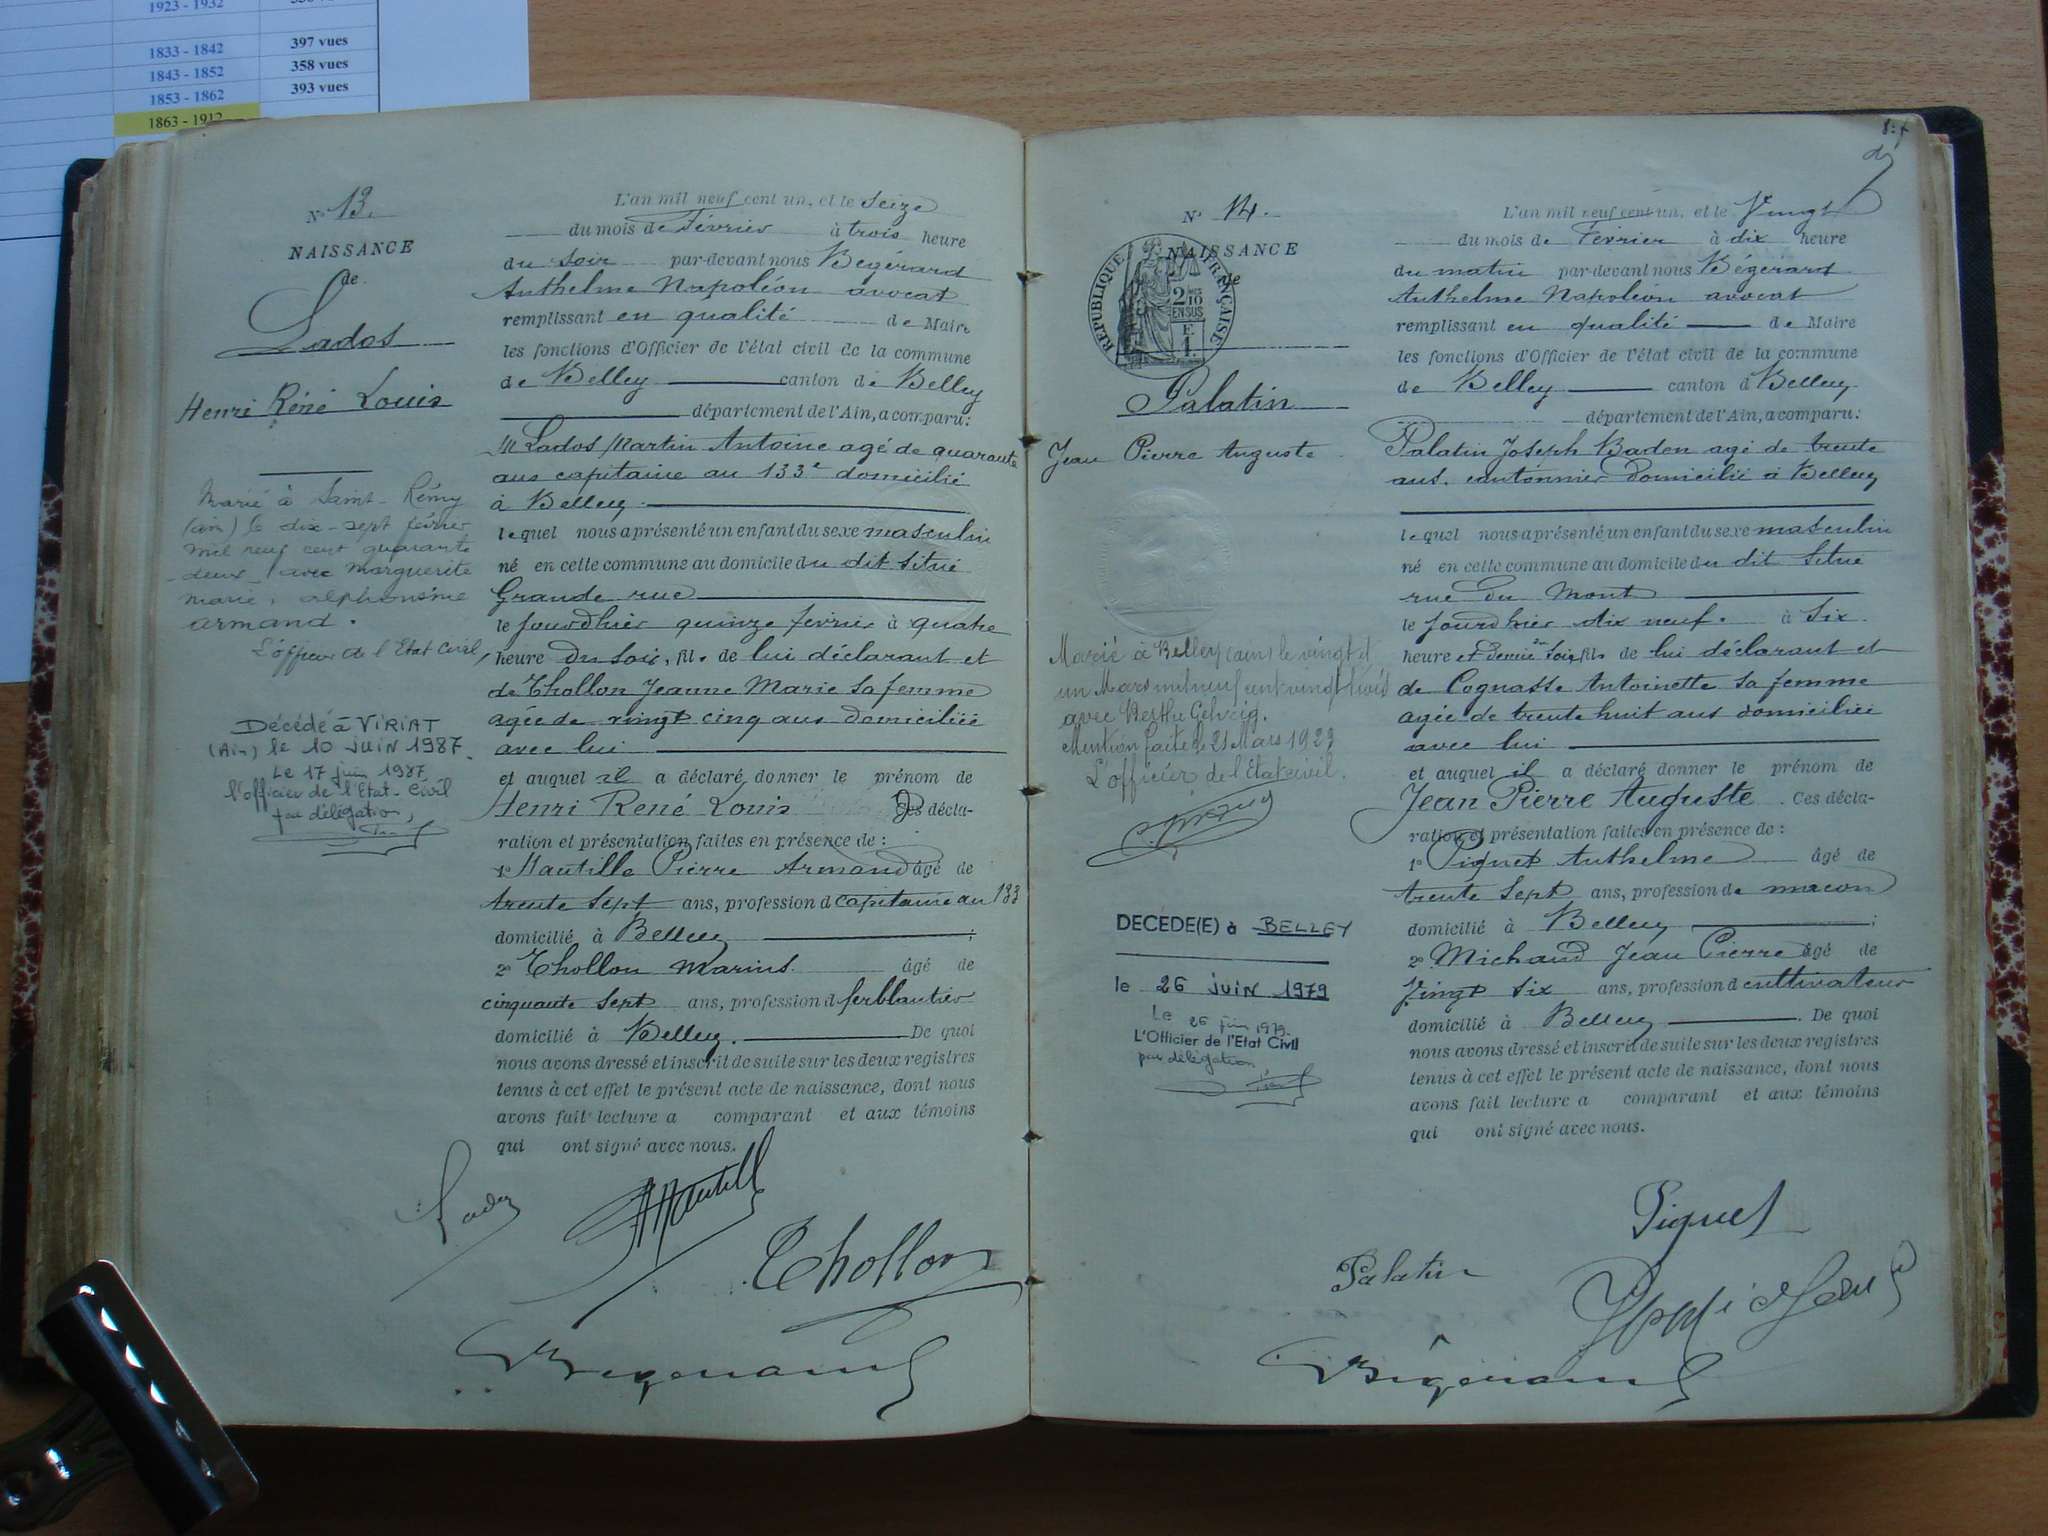 1923 - 1932
1833 - 1842 397 vues
1843 - 1852 358 vues
1853 - 1862 393 vues
1863 - 1912
N° 13.
NAISSANCE
de
Lados
Henri Réné Louis
Marié à Saint-Rémy
(ain) le dix-sept février
mil neuf cent quarante
deux avec Marguerite
Marie, alphonsine
armand.
L'officier de l'Etat Civil,
Décédé à VIRIAT
(Ain) le 10 JUIN 1987.
Le 17 juin 1987
l'officier de l'Etat-Civil
par délégation,
L'an mil neuf cent un, et le Seize
du mois de Février à trois heure
du soir par-devant nous Bégérard
Anthelme Napoléon avocat
remplissant en qualité de Maire
les fonctions d'Officier de l'état civil de la commune
de Belley canton de Belley
département de l'Ain, a comparu:
M Lados Martin Antoine agé de quarante
ans capitaine au 133e domicilié
à Belley
lequel nous a présenté un enfant du sexe masculin
né en cette commune au domicile du dit situé
Grande rue
le jourdhier quinze février à quatre
heure du soir, fils de lui déclarant et
de Thollon Jeanne Marie sa femme
agée de vingt cinq ans domiciliée
avec lui
et auquel il a déclaré donner le prénom de
Henri René Louis Ces décla-
ration et présentation faites en présence de :
1° Hautille Pierre Armand âgé de
trente sept ans, profession d capitaine au 133
domicilié à Belley ;
2° Thollon Marius âgé de
cinquante sept ans, profession d ferblantier
domicilié à Belley. De quoi
nous avons dressé et inscrit de suite sur les deux registres
tenus à cet effet le présent acte de naissance, dont nous
avons fait lecture a comparant et aux témoins
qui ont signé avec nous.
Lados
Hautille
Thollon
Bégérard
N° 14.
NAISSANCE
de
RÉPUBLIQUE FRANÇAISE
2/10
EN SUS
F.
1.
Palatin
Jean Pierre Auguste
Marié à Belley (ain) le vingt et
un Mars mil neuf cent vingt trois
avec Berthe
Mention faite le 21 Mars 1923
L'officier de l'Etat civil.
DECEDE(E) à BELLEY
le 26 JUIN 1979
Le 26 juin 1979.
L'Officier de l'Etat Civil
par délégation
L'an mil neuf cent un, et le Vingt
du mois de Février à dix heure
du matin par-devant nous Bégérard
Anthelme Napoléon avocat
remplissant en qualité de Maire
les fonctions d'Officier de l'état civil de la commune
de Belley canton d Belley
département de l'Ain, a comparu:
Palatin Joseph Baden agé de trente
ans. cantonnier domicilié à Belley
lequel nous a présenté un enfant du sexe masculin
né en cette commune au domicile du dit situé
rue du Mont
le jourdhier dix neuf. à Six
heure et demie du soir, fils de lui déclarant et
de Cognasse Antoinette sa femme
agée de trente huit ans domiciliée
avec lui
et auquel il a déclaré donner le prénom de
Jean Pierre Auguste. Ces décla-
ration et présentation faites en présence de :
1° Piquet Anthelme âgé de
trente sept ans, profession de macon
domicilié à Belley ;
2° Michaud Jean Pierre âgé de
Vingt six ans, profession d cultivateur
domicilié à Belley. De quoi
nous avons dressé et inscrit de suite sur les deux registres
tenus à cet effet le présent acte de naissance, dont nous
avons fait lecture a comparant et aux témoins
qui ont signé avec nous.
Piquet
Palatin
Bégérard